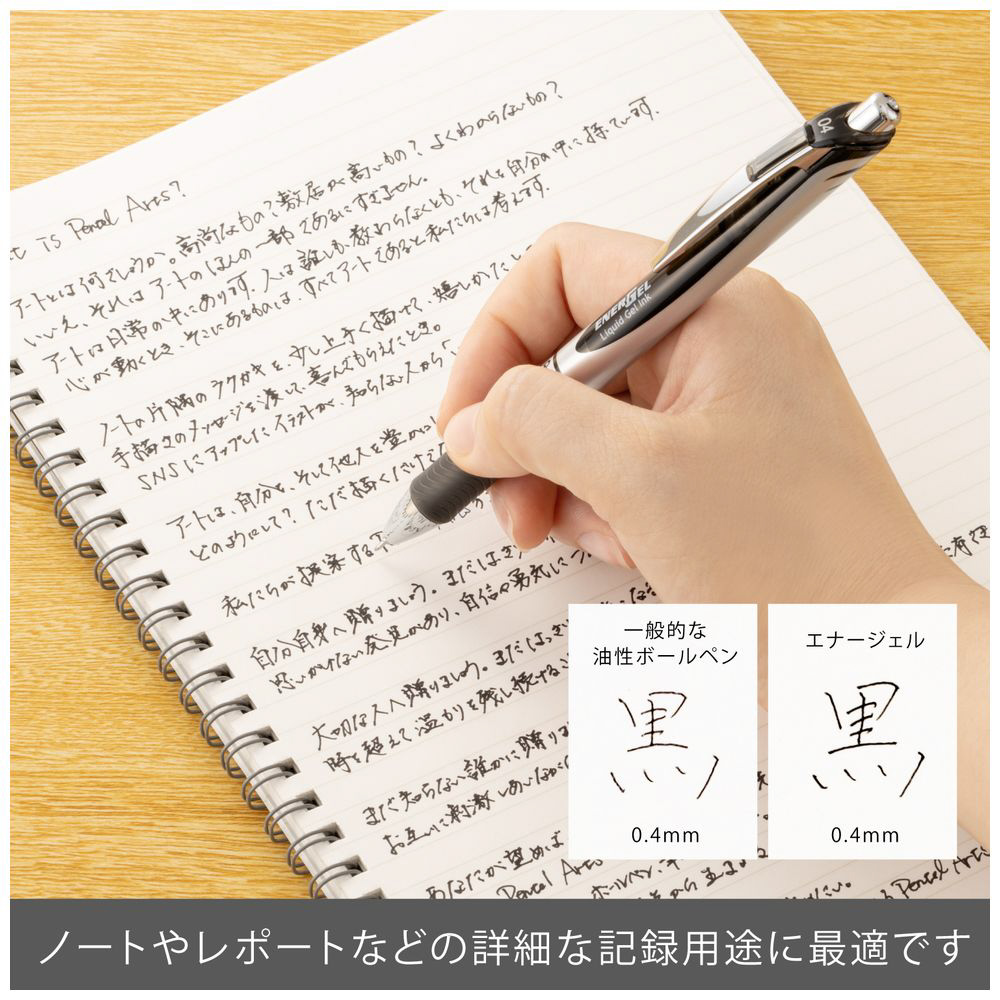 What Is Pentel Arts?
アートとは何でしょうか。高尚なもの？敷居が高いもの？よくわからないもの？
いいえ、それはアートのほんの一部であるにすぎません。
アートは日常の中にあります。人は誰しも教わらなくとも、それを自分の中に持っています。
心が動くとき、そこにあるものは、すべてアートであると私たちは考えます。
ノートの片隅のラクガキを、少し上手く描けて、嬉しかったと
手描きのメッセージを渡して、喜んでもらえたとき。
SNSにアップしたイラストが、知らない人から「い
アートは、自分を、そして他人を豊かに
どのようにして？ただ描くだけで
私たちが提案する
自分自身へ贈りましょう。まだはっき
思いがけない発見があり、自信や勇気に
大切な人へ贈りましょう。まだはっき
時を超えて温かりを残し続ける
まだ知らない誰かに贈りま
お互いに刺激しあいながら
あなたが望めば
Pentel Arts
ボールペン、
から生まれ
Pentel Arts
ENERGEL
Liquid Gel Ink
04
一般的な
油性ボールペン
黒
0.4mm
エナージェル
黒
0.4mm
ノートやレポートなどの詳細な記録用途に最適です